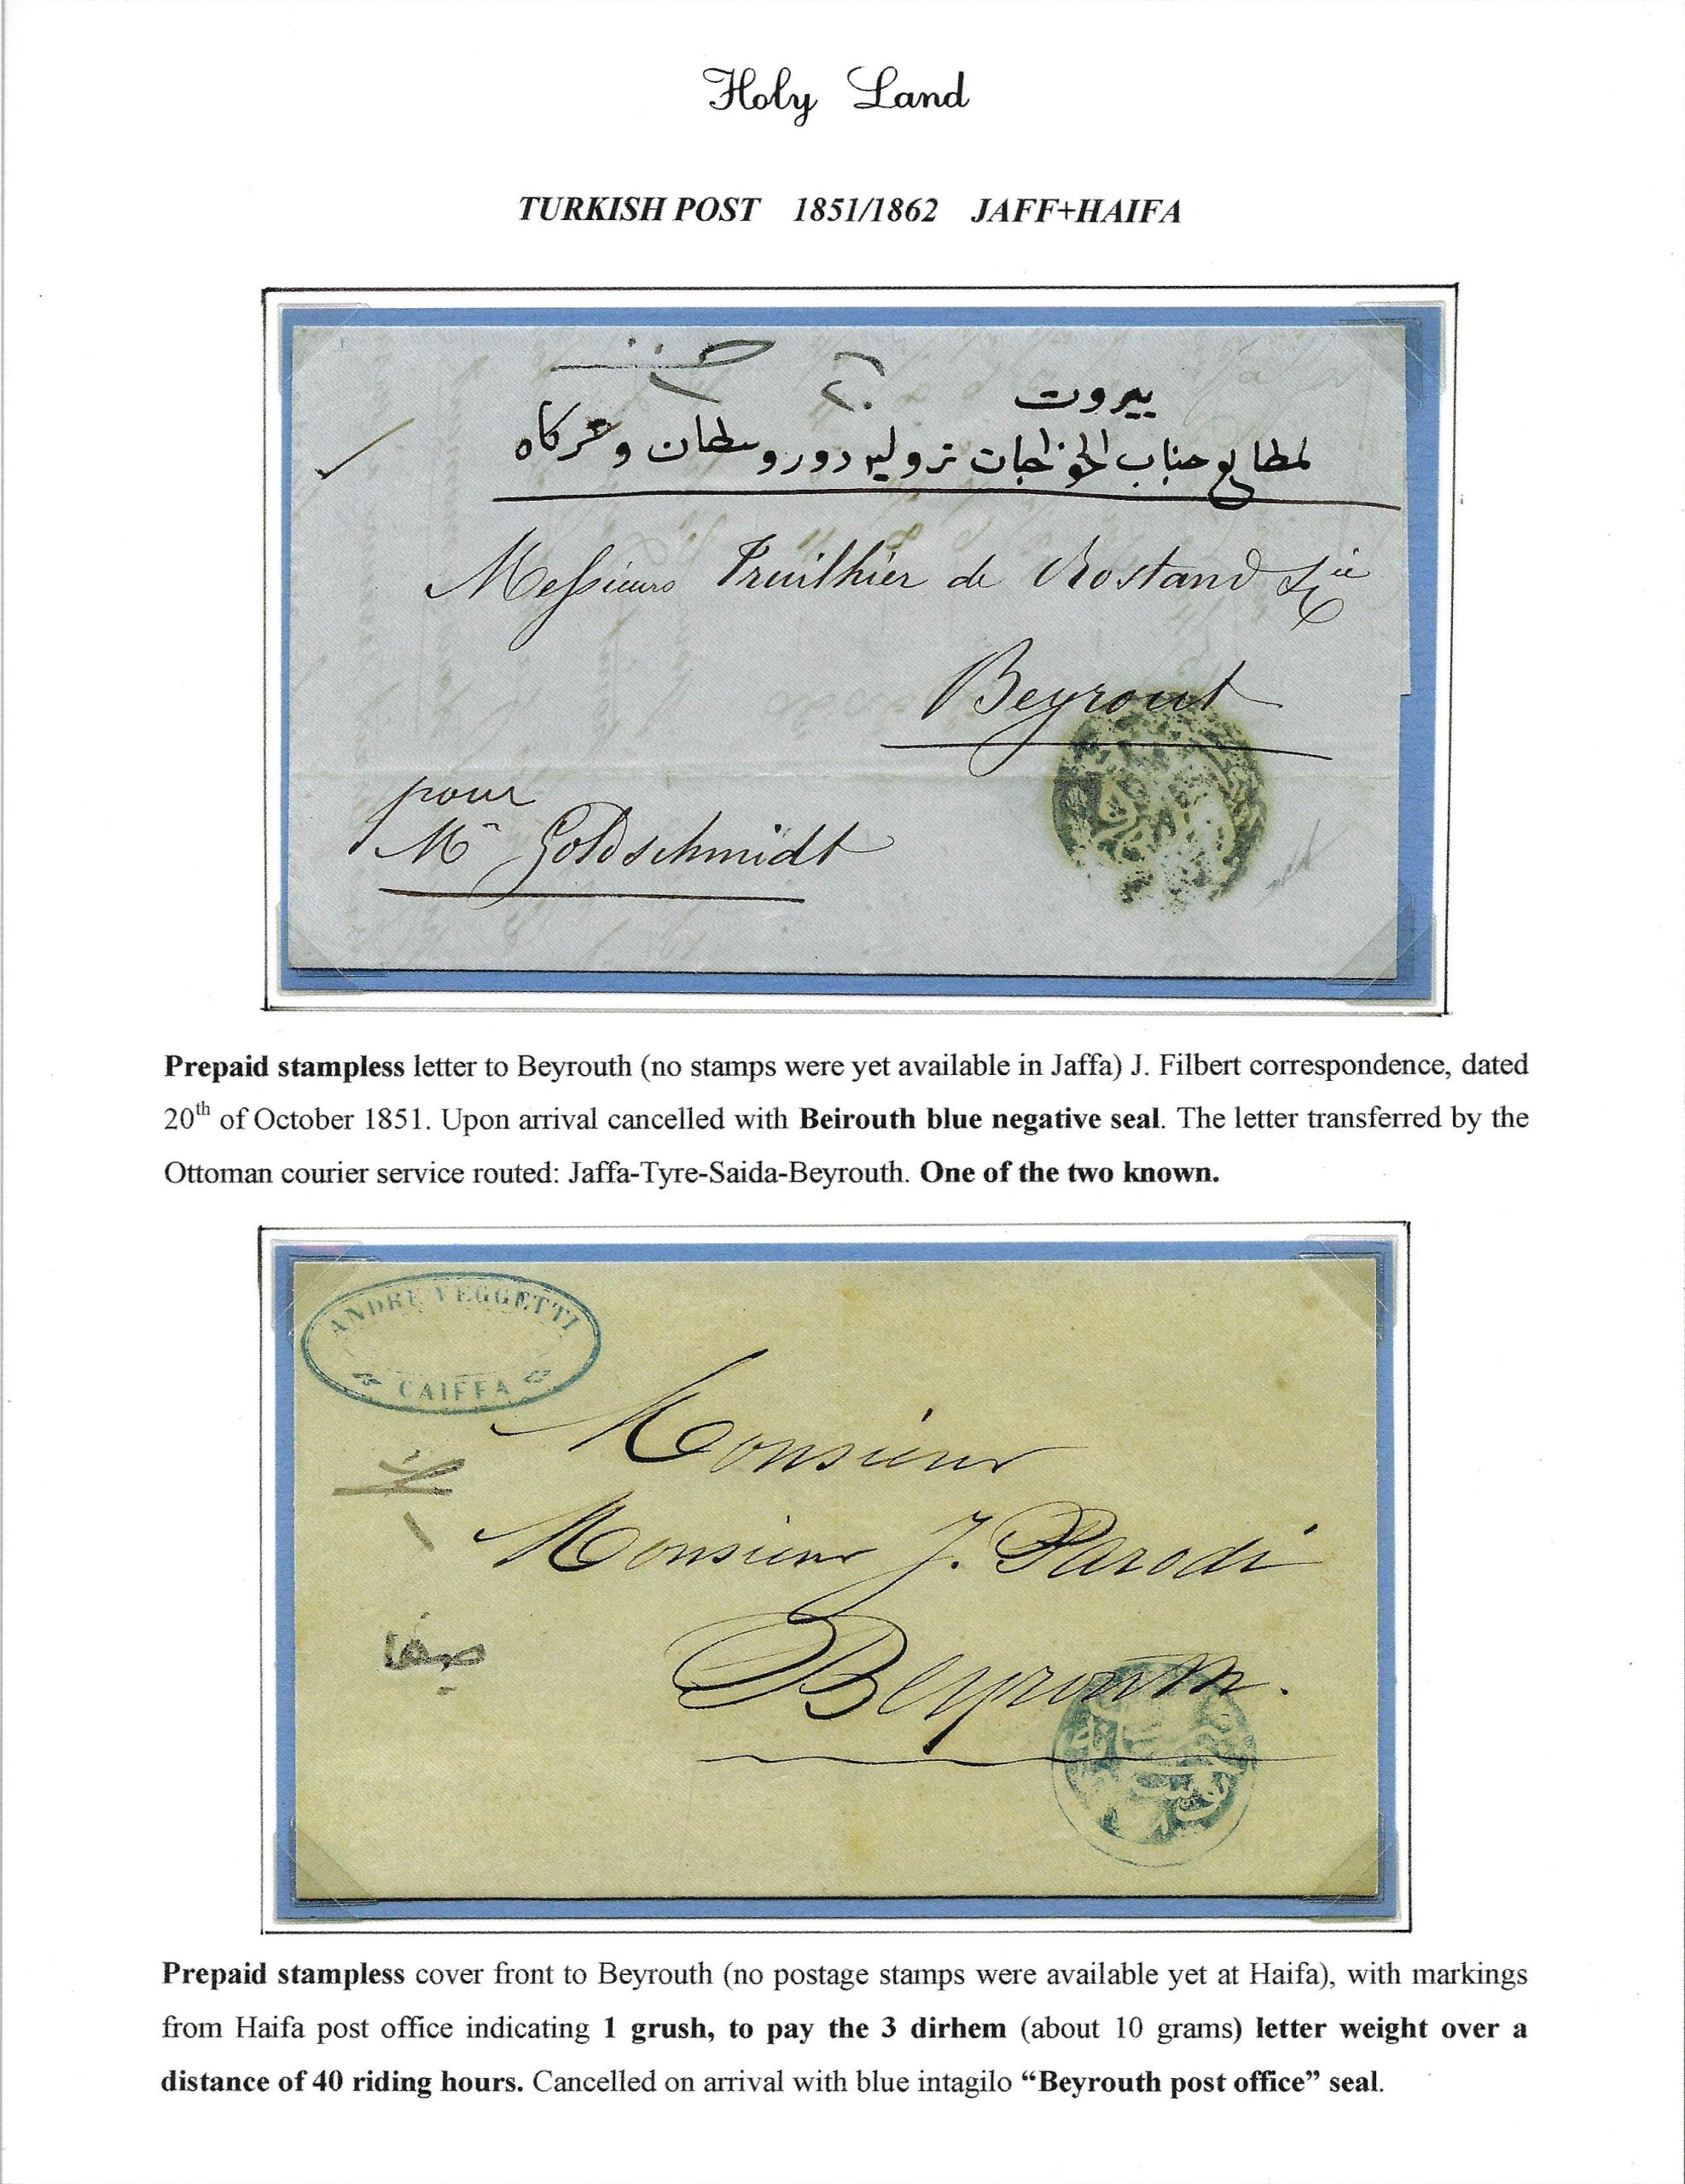 Holy Land
TURKISH POST 1851/1862 JAFF+HAIFA
بيروت
لمطالع جناب الخواجات تروليه دوروسطان وشركاه
Messieurs Fruithier de Rostand & Cie
Beyrout
pour
Mr Goldschmidt
Prepaid stampless letter to Beyrouth (no stamps were yet available in Jaffa) J. Filbert correspondence, dated
20th of October 1851. Upon arrival cancelled with Beirouth blue negative seal. The letter transferred by the
Ottoman courier service routed: Jaffa-Tyre-Saida-Beyrouth. One of the two known.
ANDRE VEGGETTI
CAIFFA
Monsieur
Monsieur J. Parodi
Beyrouth.
Prepaid stampless cover front to Beyrouth (no postage stamps were available yet at Haifa), with markings
from Haifa post office indicating 1 grush, to pay the 3 dirhem (about 10 grams) letter weight over a
distance of 40 riding hours. Cancelled on arrival with blue intagilo “Beyrouth post office” seal.